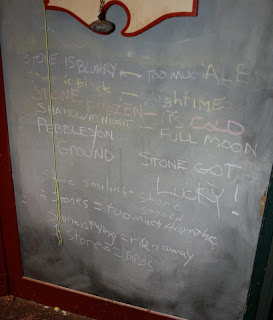 STONE IS BLURRY ← TOO MUCH ALE
Stone is black — nightime
STONE FROZEN — ITS COLD
SHADOW AT NIGHT — FULL MOON
PEBBLES ON GROUND
STONE GOT LUCKY!
Stone smiling = stone stoned
2 stones = too much
Stone is flying = run away
Stone =